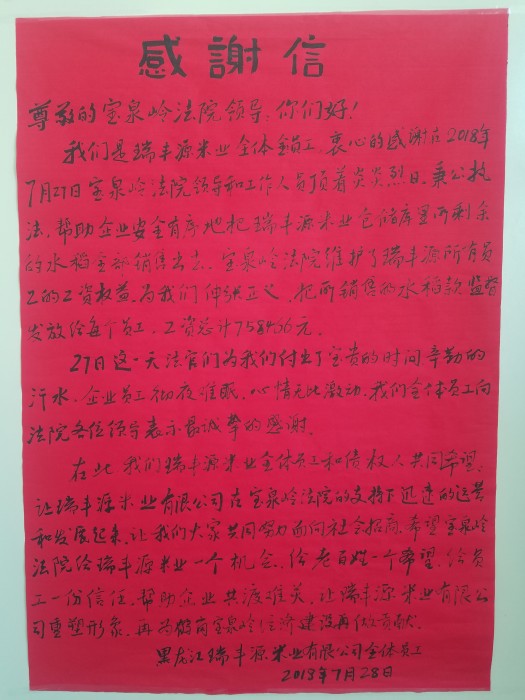 感謝信
尊敬的宝泉岭法院领导：你们好！
我们是瑞丰源米业全体员工，衷心的感谢在2018年
7月27日宝泉岭法院领导和工作人员顶着炎炎烈日，秉公执
法，帮助企业安全有序地把瑞丰源米业仓储库里所剩余
的水稻全部销售出去。宝泉岭法院维护了瑞丰源所有员
工的工资权益，为我们伸张正义，把所销售的水稻款监督
发放给每个员工，工资总计758456元。
27日这一天法官们为我们付出了宝贵的时间辛勤的
汗水，企业员工彻夜难眠，心情无比激动，我们全体员工向
法院各位领导表示最诚挚的感谢。
在此我们瑞丰源米业全体员工和债权人共同希望，
让瑞丰源米业有限公司在宝泉岭法院的支持下迅速的运营
和发展起来，让我们大家共同努力面向社会招商，希望宝泉岭
法院给瑞丰源米业一个机会，给老百姓一个希望，给员
工一份信任，帮助企业共渡难关，让瑞丰源米业有限公
司重塑形象，再为振商宝泉岭经济建设再做贡献。
黑龙江瑞丰源米业有限公司全体员工
2018年7月28日